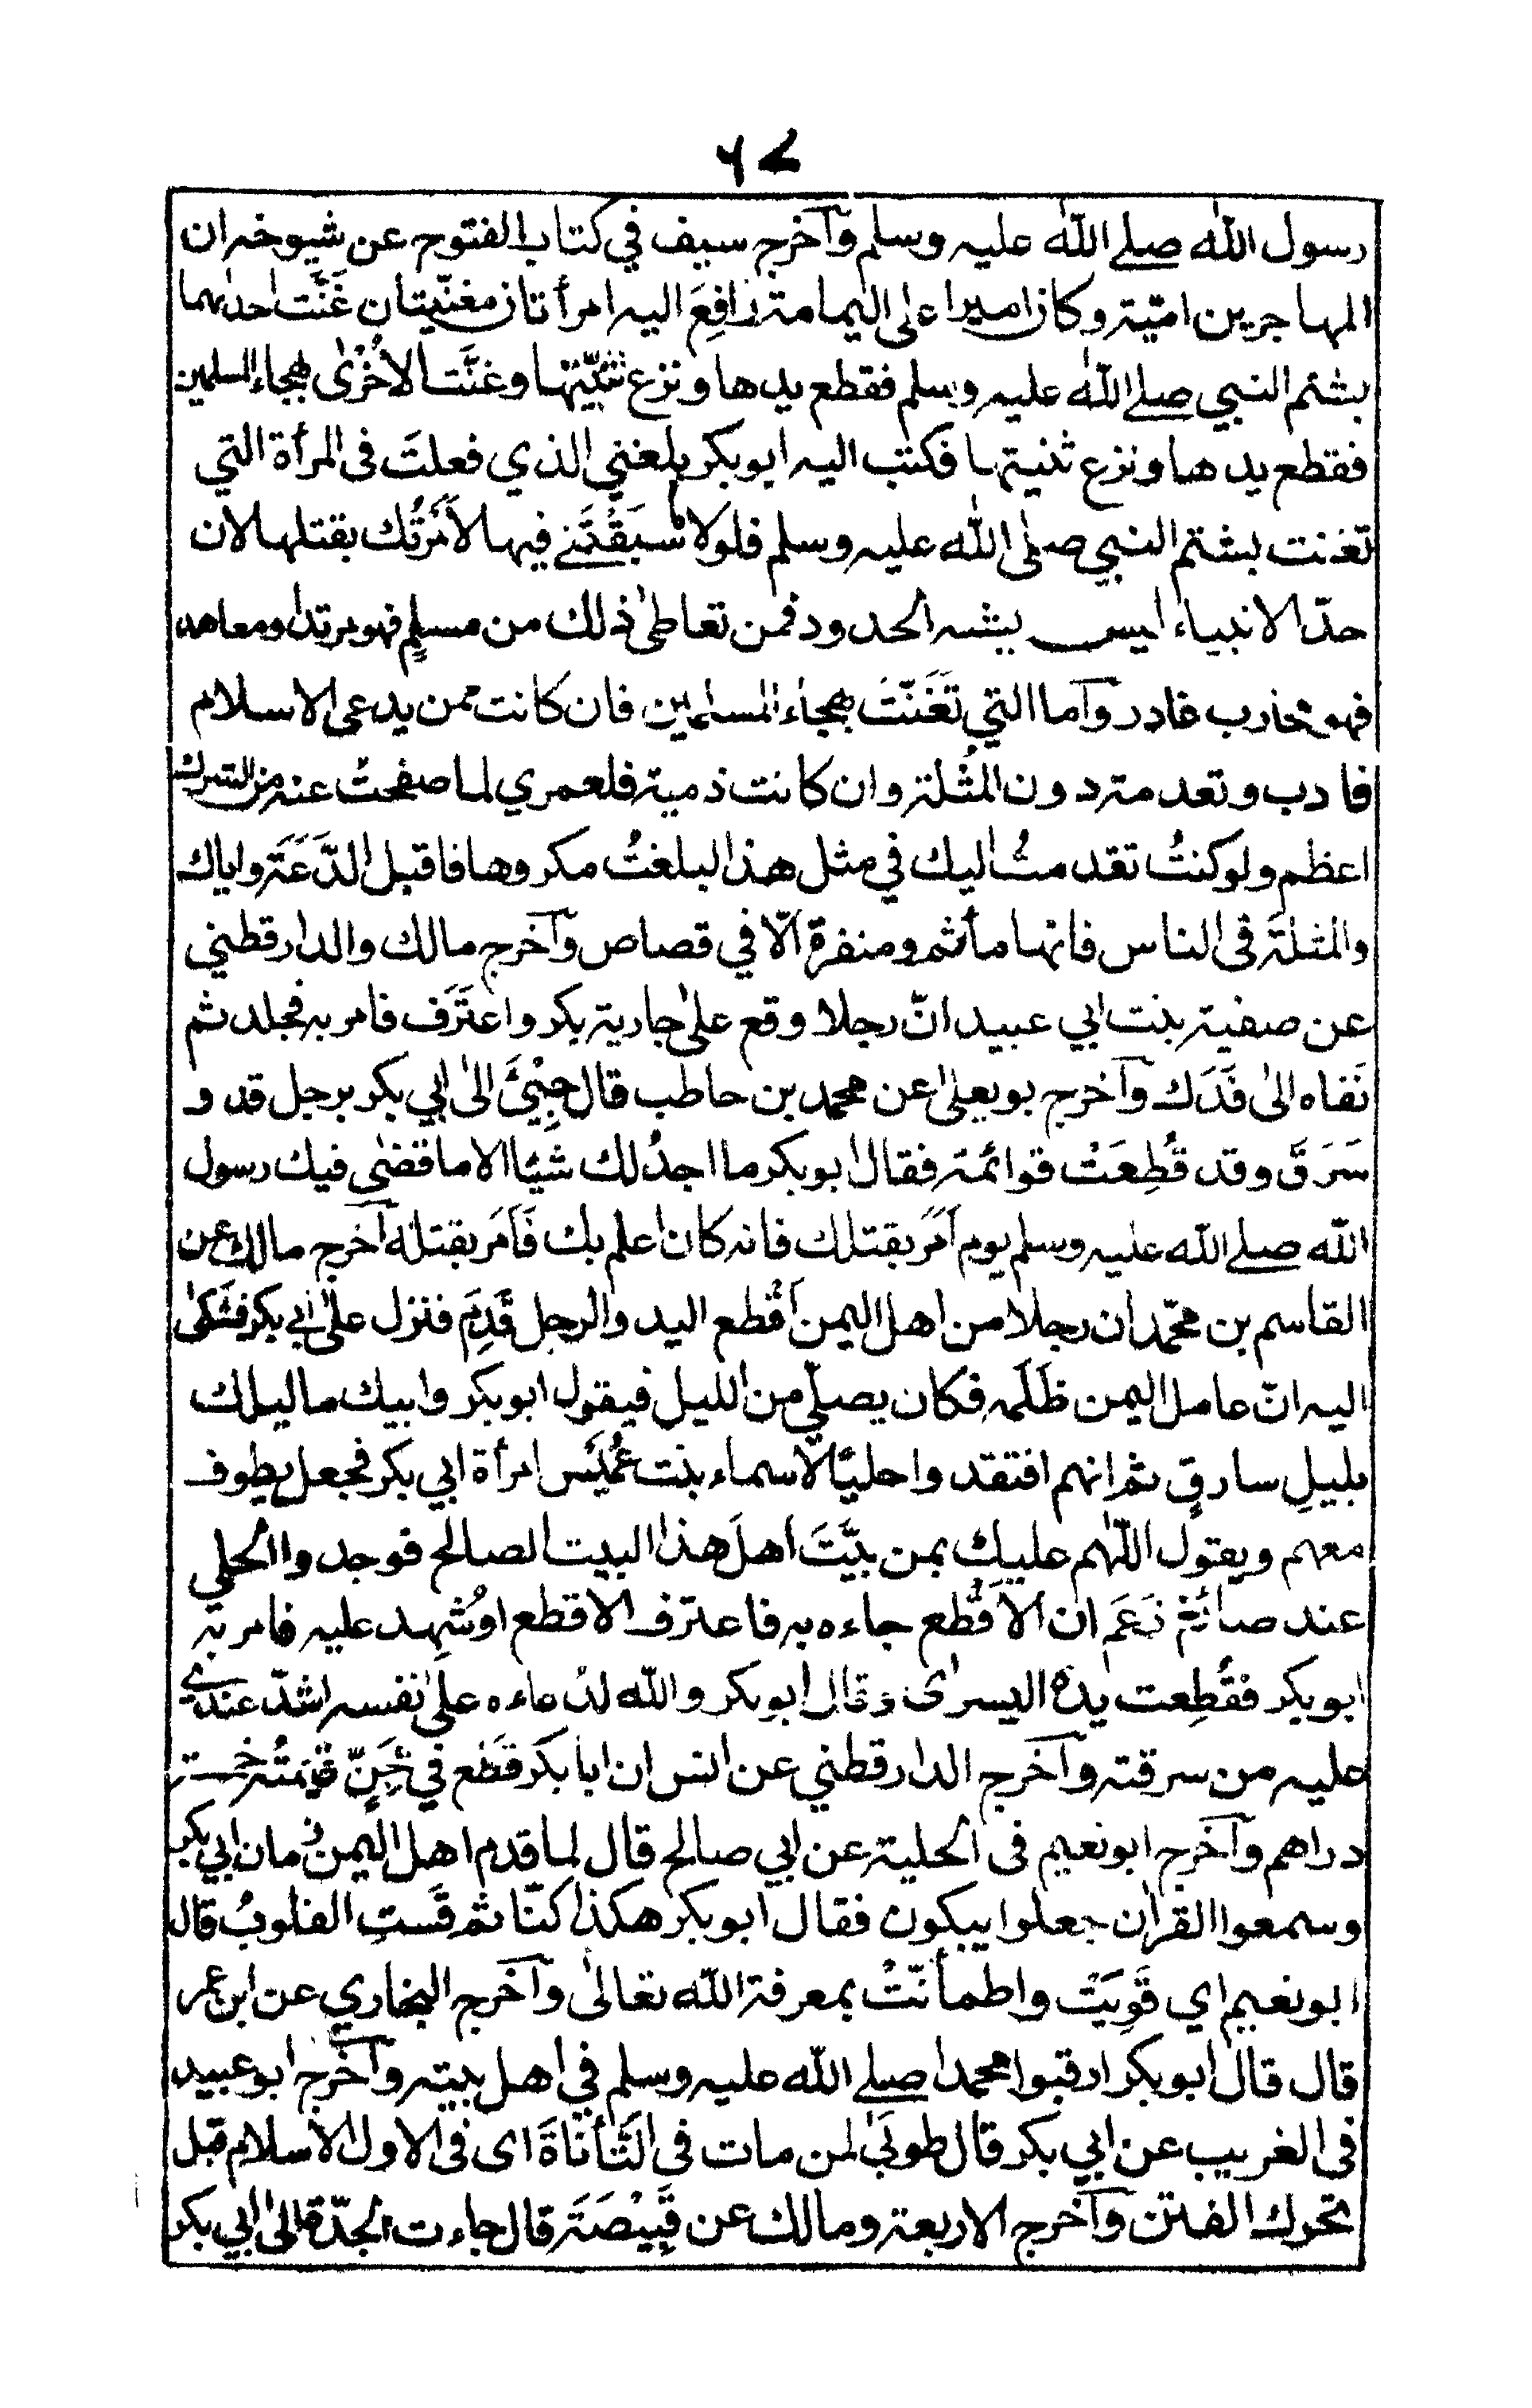 ٦٧
رسول الله صلے الله عليه وسلم وآخرج سيف في كتاب الفتوح عن شيوخه ان
المهاجر بن امّية وكان اميرا على اليمامة رافِعَ اليه امرأتان مغنّيتان غَنَّت احداهما
بشتم النبي صلے الله عليه وسلم فقطع يدها ونزع ثنيّتها وغنَّت الأُخْرٰى بهجاء المسلمين
فقطع يدها ونزع ثنيتها فكتب اليه ابوبكر بلغني الذي فعلتَ فى المرأة التي
تغنت بشتم النبي صلى الله عليه وسلم فلولا سبَقْتَنے فيها لأمَرْتُك بقتلها لان
حدّ الانبياء ليس يشبه الحدود فمن تعاطىٰ ذلك من مسلمٍ فهو مرتد او معاهد
فهو محارب غادر وآما التي تَغَنّتَ بهجاء المسلمين فان كانت ممن يدعى الاسلام
فادب وتعدمة دون المُثلة وان كانت ذمية فلعمري لما صفحتُ عنه من الشرك
اعظم ولو كنتُ تقدمتُ اليك في مثل هذا لبلغتُ مكروها فاقبل الدَّعَةَ واياك
والمثلةَ فى الناس فانها مأثم ومنفرة الّا في قصاص وآخرج مالك والدارقطني
عن صفية بنت ابي عبيد انّ رجلا وقع علىٰ جارية بكر واعتَرَف فامر به فجلد ثم
نَفاه الىٰ فَدَك وآخرج بويعلىٰ عن محمد بن حاطب قال جِيْئَ الىٰ ابي بكر برجل قد و
سَرَقَ وقد قُطِعَتْ قوائمة فقال ابوبكر ما اجدُ لك شيًا الا ما قضٰى فيك رسول
الله صلے الله عليه وسلم يوم أمَرَ بقتلك فانه كان اعلم بك فَأمَر بقتله آخرج مالك عن
القاسم بن محمّد ان رجلا من اهل اليمن أقْطع اليد والرجل قَدِمَ فنزل علىٰ ابي بكر فشكىٰ
اليه انّ عامل اليمن ظَلَمَه فكان يصلّي من الليل فيقول ابوبكر وابيك ما ليلك
بليلِ سارقٍ ثم انهم افتقدوا حليًا لأسماء بنت عُمَيْس امرأة ابي بكر فجعل يطوف
معهم ويقول اللّٰهم عليك بمن بيَّتَ اهلَ هذا البيت الصالح فوجدوا الحلي
عند صائغ زَعَم ان الأقْطع جاءه به فاعترف الاقطع اوشُهِد عليه فامر به
ابوبكر فقُطِعت يده اليسرٰى وقال ابوبكر والله لدُعاءه علىٰ نفسه اشدّ عندي
عليه من سرقته وآخرج الدارقطني عن انس ان ابا بكر قَطَع في مِجَنّ قيمتُه خمسة
دراهم وآخرج ابونعيم فى الحلية عن ابي صالح قال لما قدم اهل اليمن زمان ابي بكر
وسمعوا القران جعلوا يبكون فقال ابوبكر هكذا كنّا ثم قَستِ القلوبُ قال
ابونعيم اي قَوِيَتْ واطمأنّتْ بمعرفة الله تعالىٰ وآخرج البخاري عن ابن عمر
قال قال ابوبكر ارقبوا محمدا صلے الله عليه وسلم في اهل بيته وآخرج ابوعبيد
فى الغريب عن ابي بكر قال طوبىٰ لمن مات فى النَأنَاةَ اى فى الاول الاسلام قبل
تحرك الفتن وآخرج الاربعة ومالك عن قَبِيْصَةَ قال جاءت الجدّة الىٰ ابي بكر